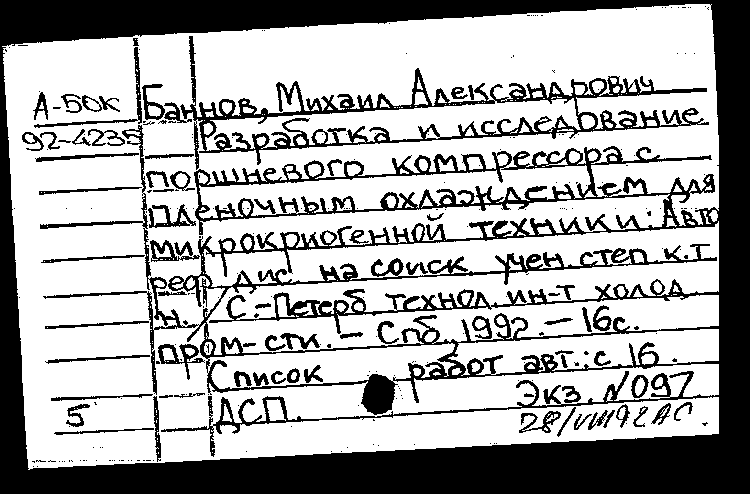 А-БОК Баннов, Михаил Александрович
92-4235 Разработка и исследование
поршневого компрессора с
пленочным охлаждением для
микрокриогенной техники: Авто
реф дис. на соиск. учен. степ к.т.
н. / С.-Петерб технол. ин-т холод.
пром-сти. - Спб., 1992. - 16с.
Список работ авт.: с. 16.
5 ДСП. Экз. №097
28/VIII92 АС.